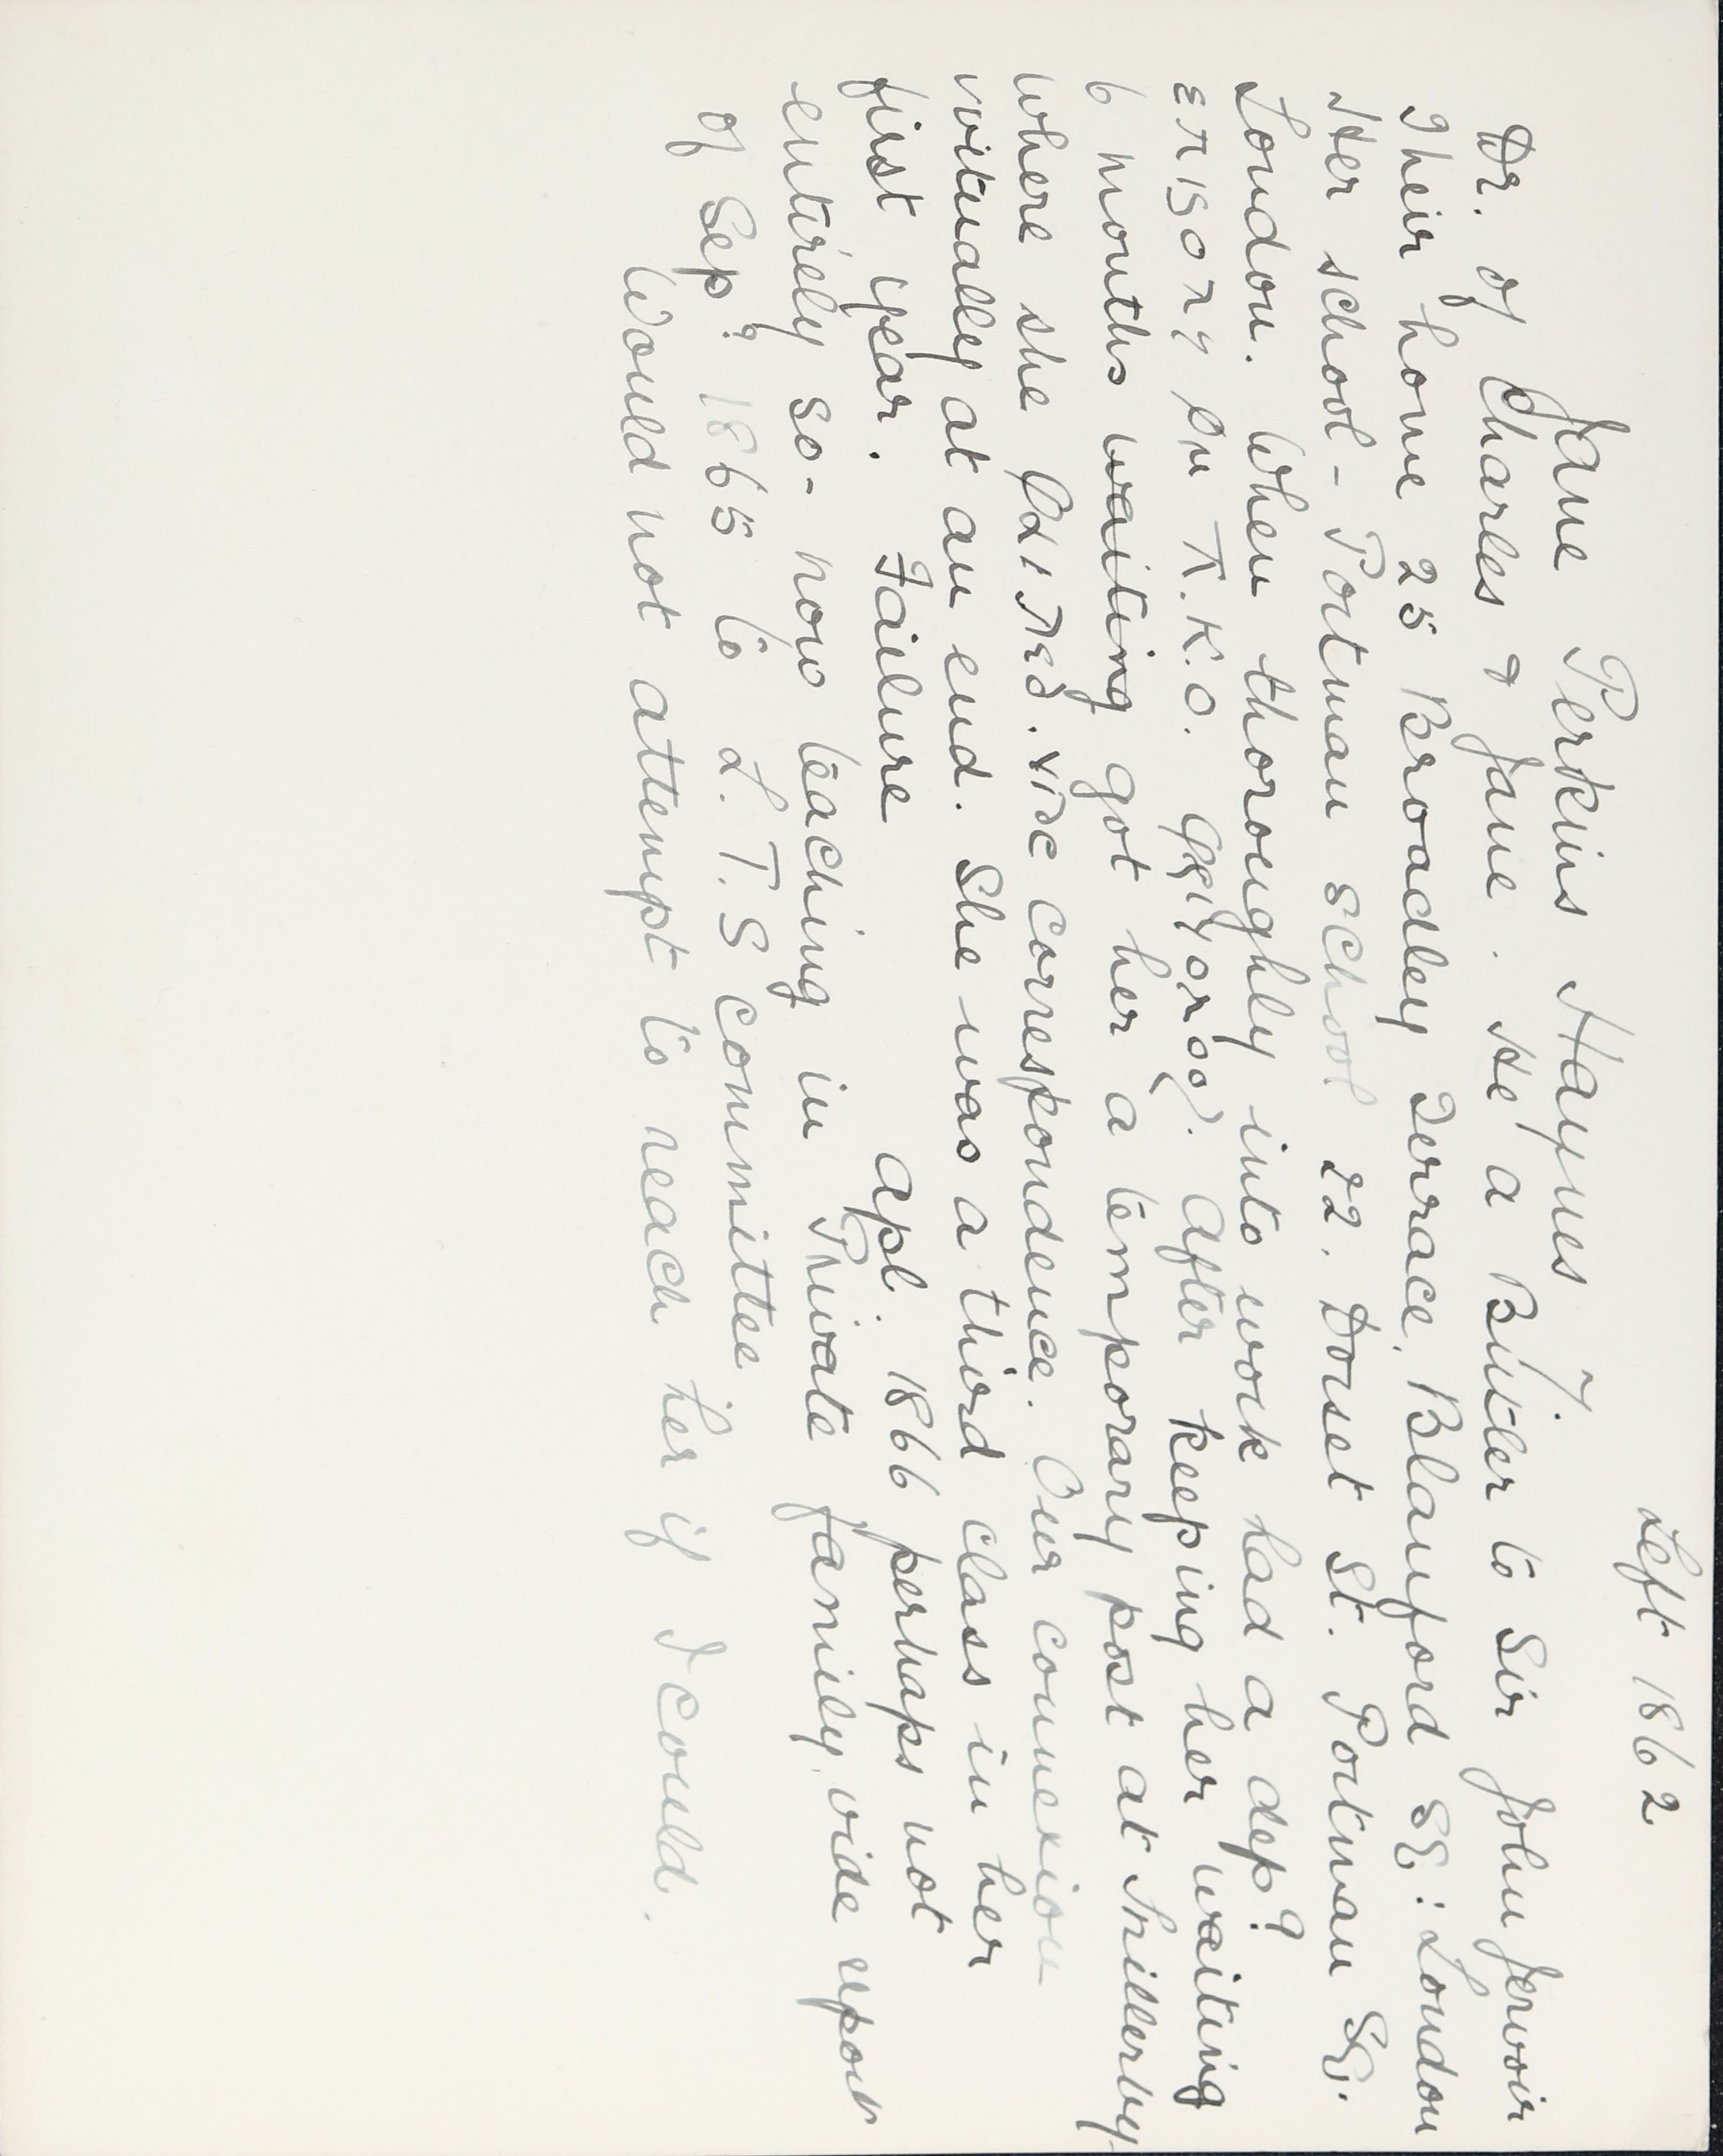 Left 1862
Jane Perkins Haynes 7.
Dr. of Charles & Jane. He a Butler to Sir John Jervoir
Their home 25 Broadley Terrace, Blandford Sq: London
Her school - Portman School 22. Dorset St. Portman Sq.
London. When thoroughly into work had a dep?
T.K.O. After keeping her waiting
6 months waiting got her a temporary post at Thillerby
where she vide correspondence. Our connexion
virtually at an end. She was a third class in her
first year. Failure Apl. 1866 perhaps not
entirely so - now teaching in Private family, vide report
of Sep? 1865 to L.T.S committee
Would not attempt to reach her if I could.